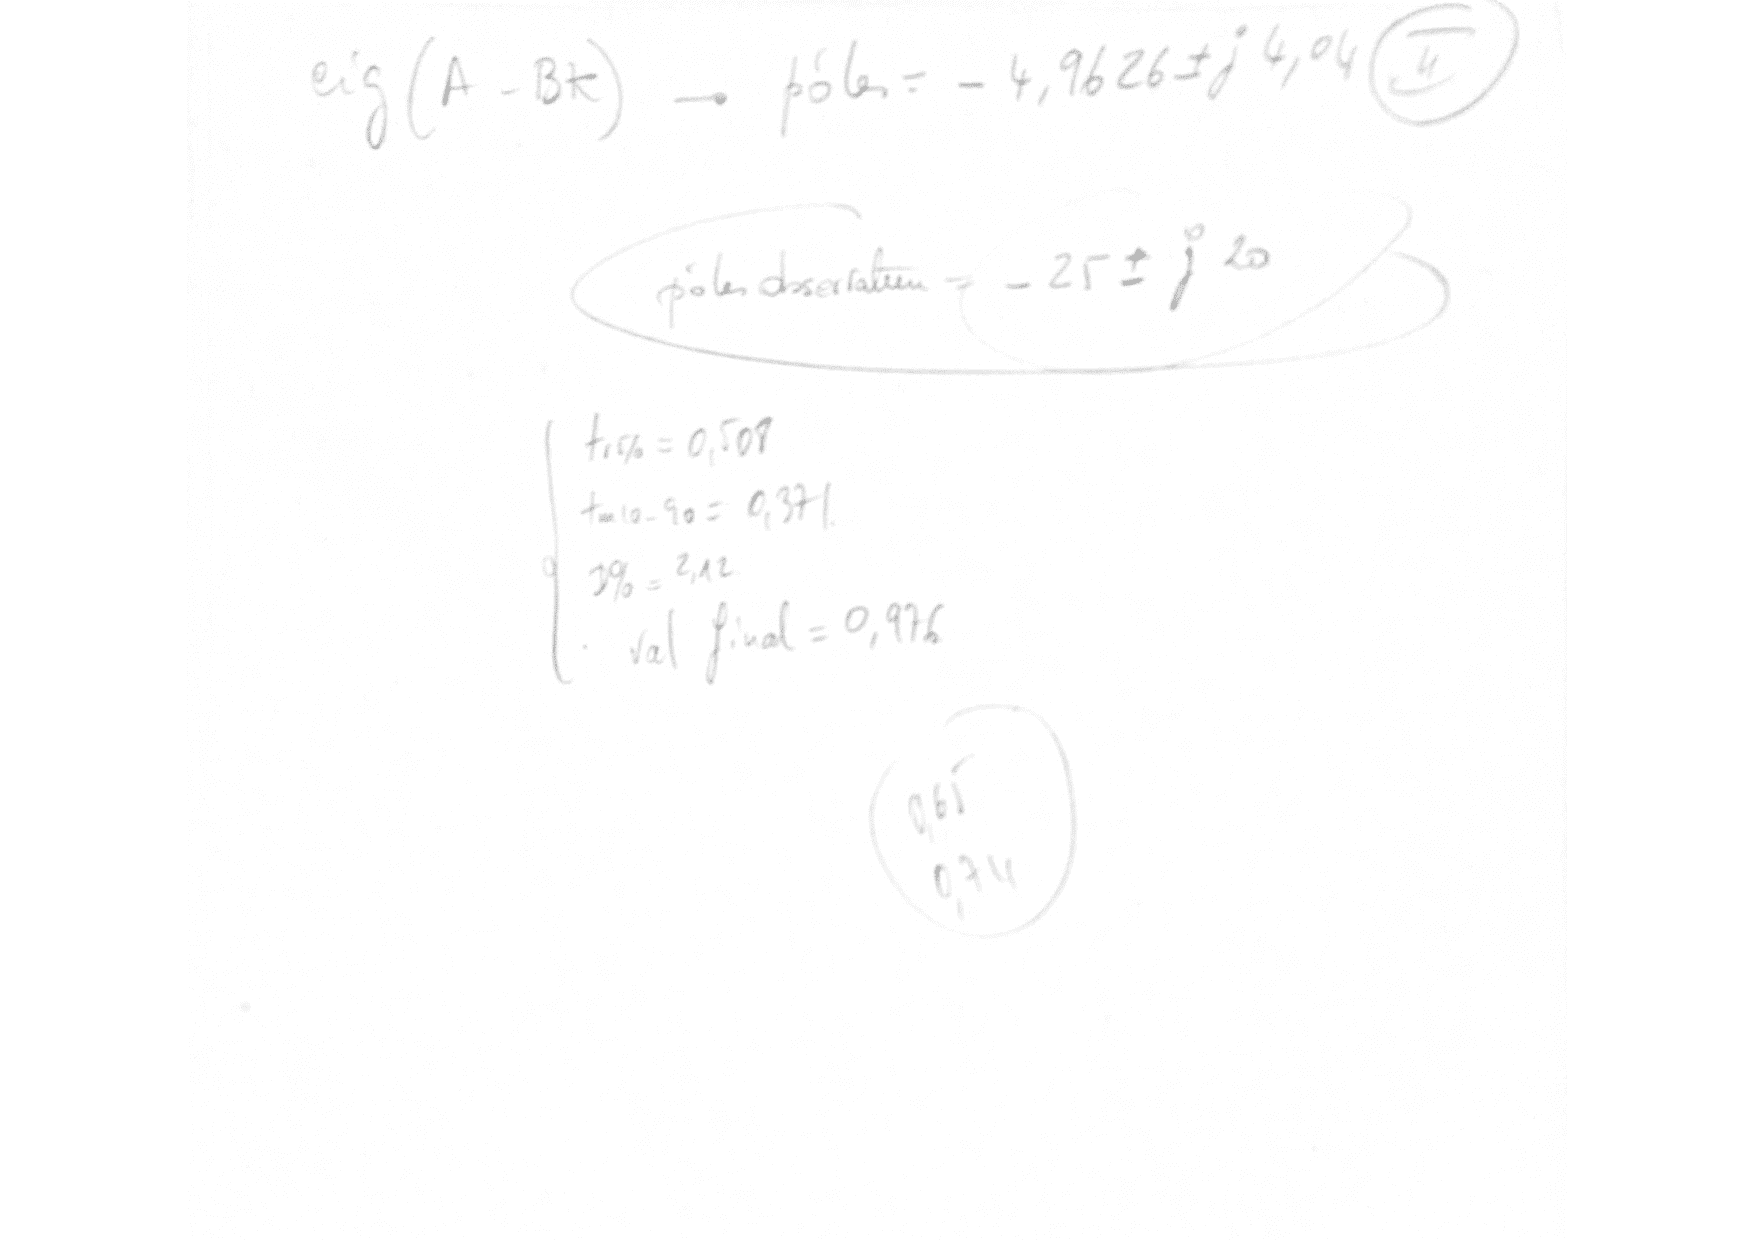 eig(A - BK) → pôles = - 4,9626 ± j 4,04 II 4
pôles observateur = - 25 ± j 20
tr5% = 0,508
tm10-90 = 0,371
D% = 2,12
val final = 0,976
0,65
0,74